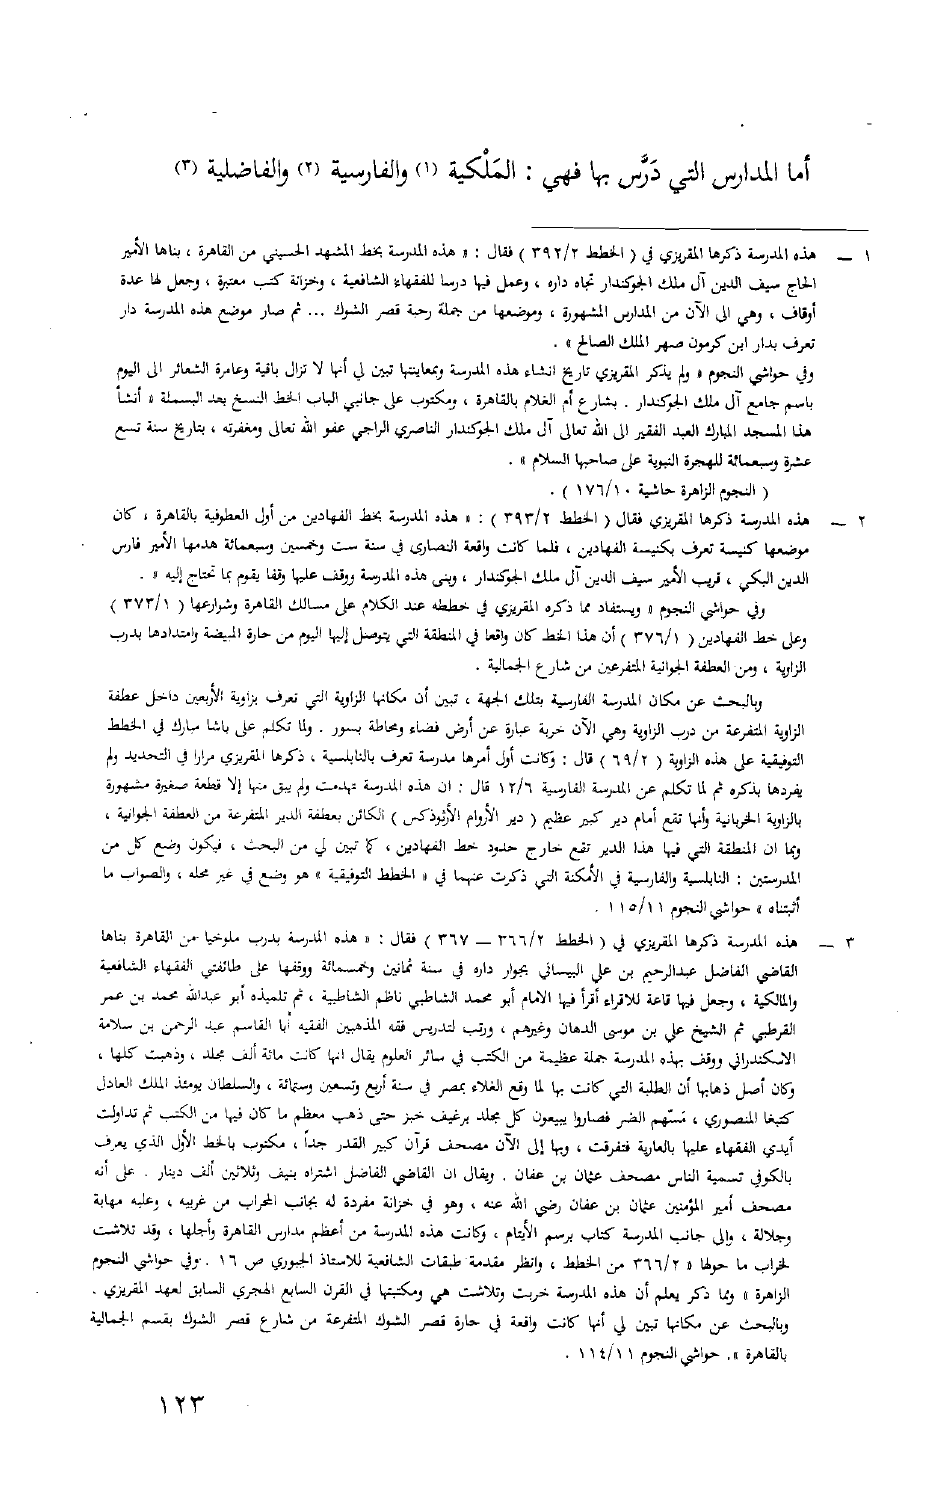 أما المدارس التي دَرَّس بها فهي : المَلْكية (١) والفارسية (٢) والفاضلية (٣)
١ ــ هذه المدرسة ذكرها المقريزي في ( الخطط ٣٩٢/٢ ) فقال : « هذه المدرسة بخط المشهد الحسيني من القاهرة ، بناها الأمير
الحاج سيف الدين آل ملك الجوكندار تجاه داره ، وعمل فيها درسا للفقهاء الشافعية ، وخزانة كتب معتبرة ، وجعل لها عدة
أوقاف ، وهي الى الآن من المدارس المشهورة ، وموضعها من جملة رحبة قصر الشوك ... ثم صار موضع هذه المدرسة دار
تعرف بدار ابن كرمون صهر الملك الصالح » .
وفي حواشي النجوم « ولم يذكر المقريزي تاريخ انشاء هذه المدرسة وبمعاينتها تبين لي أنها لا تزال باقية وعامرة الشعائر الى اليوم
باسم جامع آل ملك الجوكندار . بشارع أم الغلام بالقاهرة ، ومكتوب على جانبي الباب الخط النسخ بعد البسملة « أنشأ
هذا المسجد المبارك العبد الفقير الى الله تعالى آل ملك الجوكندار الناصري الراجي عفو الله تعالى ومغفرته ، بتاريخ سنة تسع
عشرة وسبعمائة للهجرة النبوية على صاحبها السلام » .
( النجوم الزاهرة حاشية ١٧٦/١٠ ) .
٢ ــ هذه المدرسة ذكرها المقريزي فقال ( الخطط ٣٩٣/٢ ) : « هذه المدرسة بخط الفهادين من أول العطوفية بالقاهرة ، كان
موضعها كنيسة تعرف بكنيسة الفهادين ، فلما كانت واقعة النصارى في سنة ست وخمسين وسبعمائة هدمها الأمير فارس
الدين البكي ، قريب الأمير سيف الدين آل ملك الجوكندار ، وبنى هذه المدرسة ووقف عليها وقفا يقوم بما تحتاج إليه » .
وفي حواشي النجوم « ويستفاد مما ذكره المقريزي في خططه عند الكلام على مسالك القاهرة وشوارعها ( ٣٧٣/١ )
وعلى خط الفهادين ( ٣٧٦/١ ) أن هذا الخط كان واقعا في المنطقة التي يتوصل إليها اليوم من حارة المبيضة وامتدادها بدرب
الزاوية ، ومن العطفة الجوانية المتفرعين من شارع الجمالية .
وبالبحث عن مكان المدرسة الفارسية بتلك الجهة ، تبين أن مكانها الزاوية التي تعرف بزاوية الأربعين داخل عطفة
الزاوية المتفرعة من درب الزاوية وهي الآن خربة عبارة عن أرض فضاء ومحاطة بسور . ولما تكلم على باشا مبارك في الخطط
التوفيقية على هذه الزاوية ( ٦٩/٢ ) قال : وكانت أول أمرها مدرسة تعرف بالنابلسية ، ذكرها المقريزي مرارا في التحديد ولم
يفردها بذكره ثم لما تكلم عن المدرسة الفارسية ١٢/٦ قال : ان هذه المدرسة تهدمت ولم يبق منها إلا قطعة صغيرة مشهورة
بالزاوية الخربانية وأنها تقع أمام دير كبير عظيم ( دير الأروام الأرثوذكس ) الكائن بعطفة الدير المتفرعة من العطفة الجوانية ،
وبما ان المنطقة التي فيها هذا الدير تقع خارج حدود خط الفهادين ، كما تبين لي من البحث ، فيكون وضع كل من
المدرستين : النابلسية والفارسية في الأمكنة التي ذكرت عنهما في « الخطط التوفيقية » هو وضع في غير محله ، والصواب ما
أثبتناه » حواشي النجوم ١١٥/١١ .
٣ ــ هذه المدرسة ذكرها المقريزي في ( الخطط ٣٦٦/٢ ــ ٣٦٧ ) فقال : « هذه المدرسة بدرب ملوخيا من القاهرة بناها
القاضي الفاضل عبدالرحيم بن علي البيساني بجوار داره في سنة ثمانين وخمسمائة ووقفها على طائفتي الفقهاء الشافعية
والمالكية ، وجعل فيها قاعة للاقراء أقرأ فيها الامام أبو محمد الشاطبي ناظم الشاطبية ، ثم تلميذه أبو عبدالله محمد بن عمر
القرطبي ثم الشيخ علي بن موسى الدهان وغيرهم ، ورتب لتدريس فقه المذهبين الفقيه أبا القاسم عبد الرحمن بن سلامة
الاسكندراني ووقف بهذه المدرسة جملة عظيمة من الكتب في سائر العلوم يقال انها كانت مائة ألف مجلد ، وذهبت كلها ،
وكان أصل ذهابها أن الطلبة التي كانت بها لما وقع الغلاء بمصر في سنة أربع وتسعين وستمائة ، والسلطان يومئذ الملك العادل
كتبغا المنصوري ، مَسّهم الضر فصاروا يبيعون كل مجلد برغيف خبز حتى ذهب معظم ما كان فيها من الكتب ثم تداولت
أيدي الفقهاء عليها بالعارية فتفرقت ، وبها إلى الآن مصحف قرآن كبير القدر جداً ، مكتوب بالخط الأول الذي يعرف
بالكوفي تسمية الناس مصحف عثمان بن عفان . ويقال ان القاضي الفاضل اشتراه بنيف وثلاثين ألف دينار . على أنه
مصحف أمير المؤمنين عثمان بن عفان رضي الله عنه ، وهو في خزانة مفردة له بجانب المحراب من غربيه ، وعليه مهابة
وجلالة ، والى جانب المدرسة كتاب برسم الأيتام ، وكانت هذه المدرسة من أعظم مدارس القاهرة وأجلها ، وقد تلاشت
لخراب ما حولها « ٣٦٦/٢ من الخطط ، وانظر مقدمة طبقات الشافعية للاستاذ الجبوري ص ١٦ . وفي حواشي النجوم
الزاهرة » وبما ذكر يعلم أن هذه المدرسة خربت وتلاشت هي ومكتبتها في القرن السابع الهجري السابق لعهد المقريزي .
وبالبحث عن مكانها تبين لي أنها كانت واقعة في حارة قصر الشوك المتفرعة من شارع قصر الشوك بقسم الجمالية
بالقاهرة ». حواشي النجوم ١١٤/١١ .
١٢٣